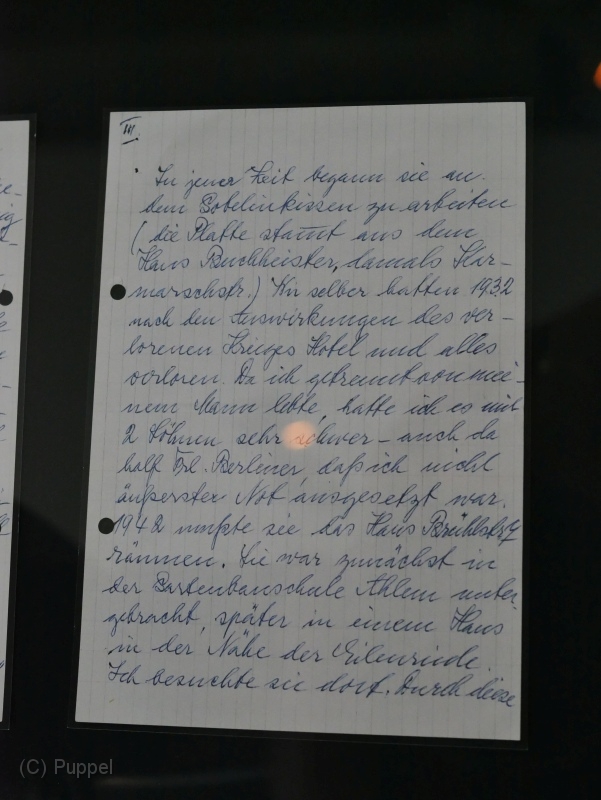 III.
In jener Zeit begann sie an
dem Gobelinkissen zu arbeiten
( die Platte stam̅t aus dem
Haus Buchheister, damals
marschstr.) Wir selber hatten 1932
nach den Auswirkungen des ver-
lorenen Krieges Hotel und alles
verloren. Da ich getrennt von mei-
nem Mann lebte, hatte ich es mit
2 Söhnen sehr schwer – auch da
half Frl. Berliner, daß ich nicht
äußerster Not ausgesetzt war.
1942 mußte sie das Haus Brühlstr. 7
räumen. Sie war zunächst in
der Gartenbauschule Ahlem unter-
gebracht, später in einem Haus
in der Nähe der Eilenriede.
Ich besuchte sie dort. Durch diese
(C) Puppel